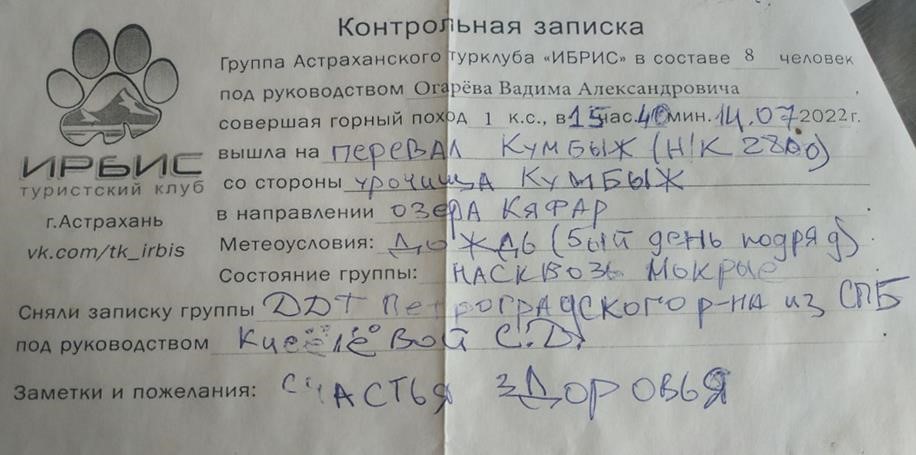 Контрольная записка
Группа Астраханского турклуба «ИБРИС» в составе 8 человек
под руководством Огарёва Вадима Александровича
совершая горный поход 1 к.с., в 15 час. 40 мин. 14.07 2022 г.
ИРБИС
туристский клуб
г.Астрахань
vk.com/tk_irbis
вышла на перевал Кумбыж (Н/К 2800)
со стороны урочища Кумбыж
в направлении озера Кяфар
Метеоусловия: дождь (5ый день подряд)
Состояние группы: насквозь мокрые
Сняли записку группы ДДТ Петроградского р-на из СПБ
под руководством Киселёвой С.D.
Заметки и пожелания: счастья здоровья